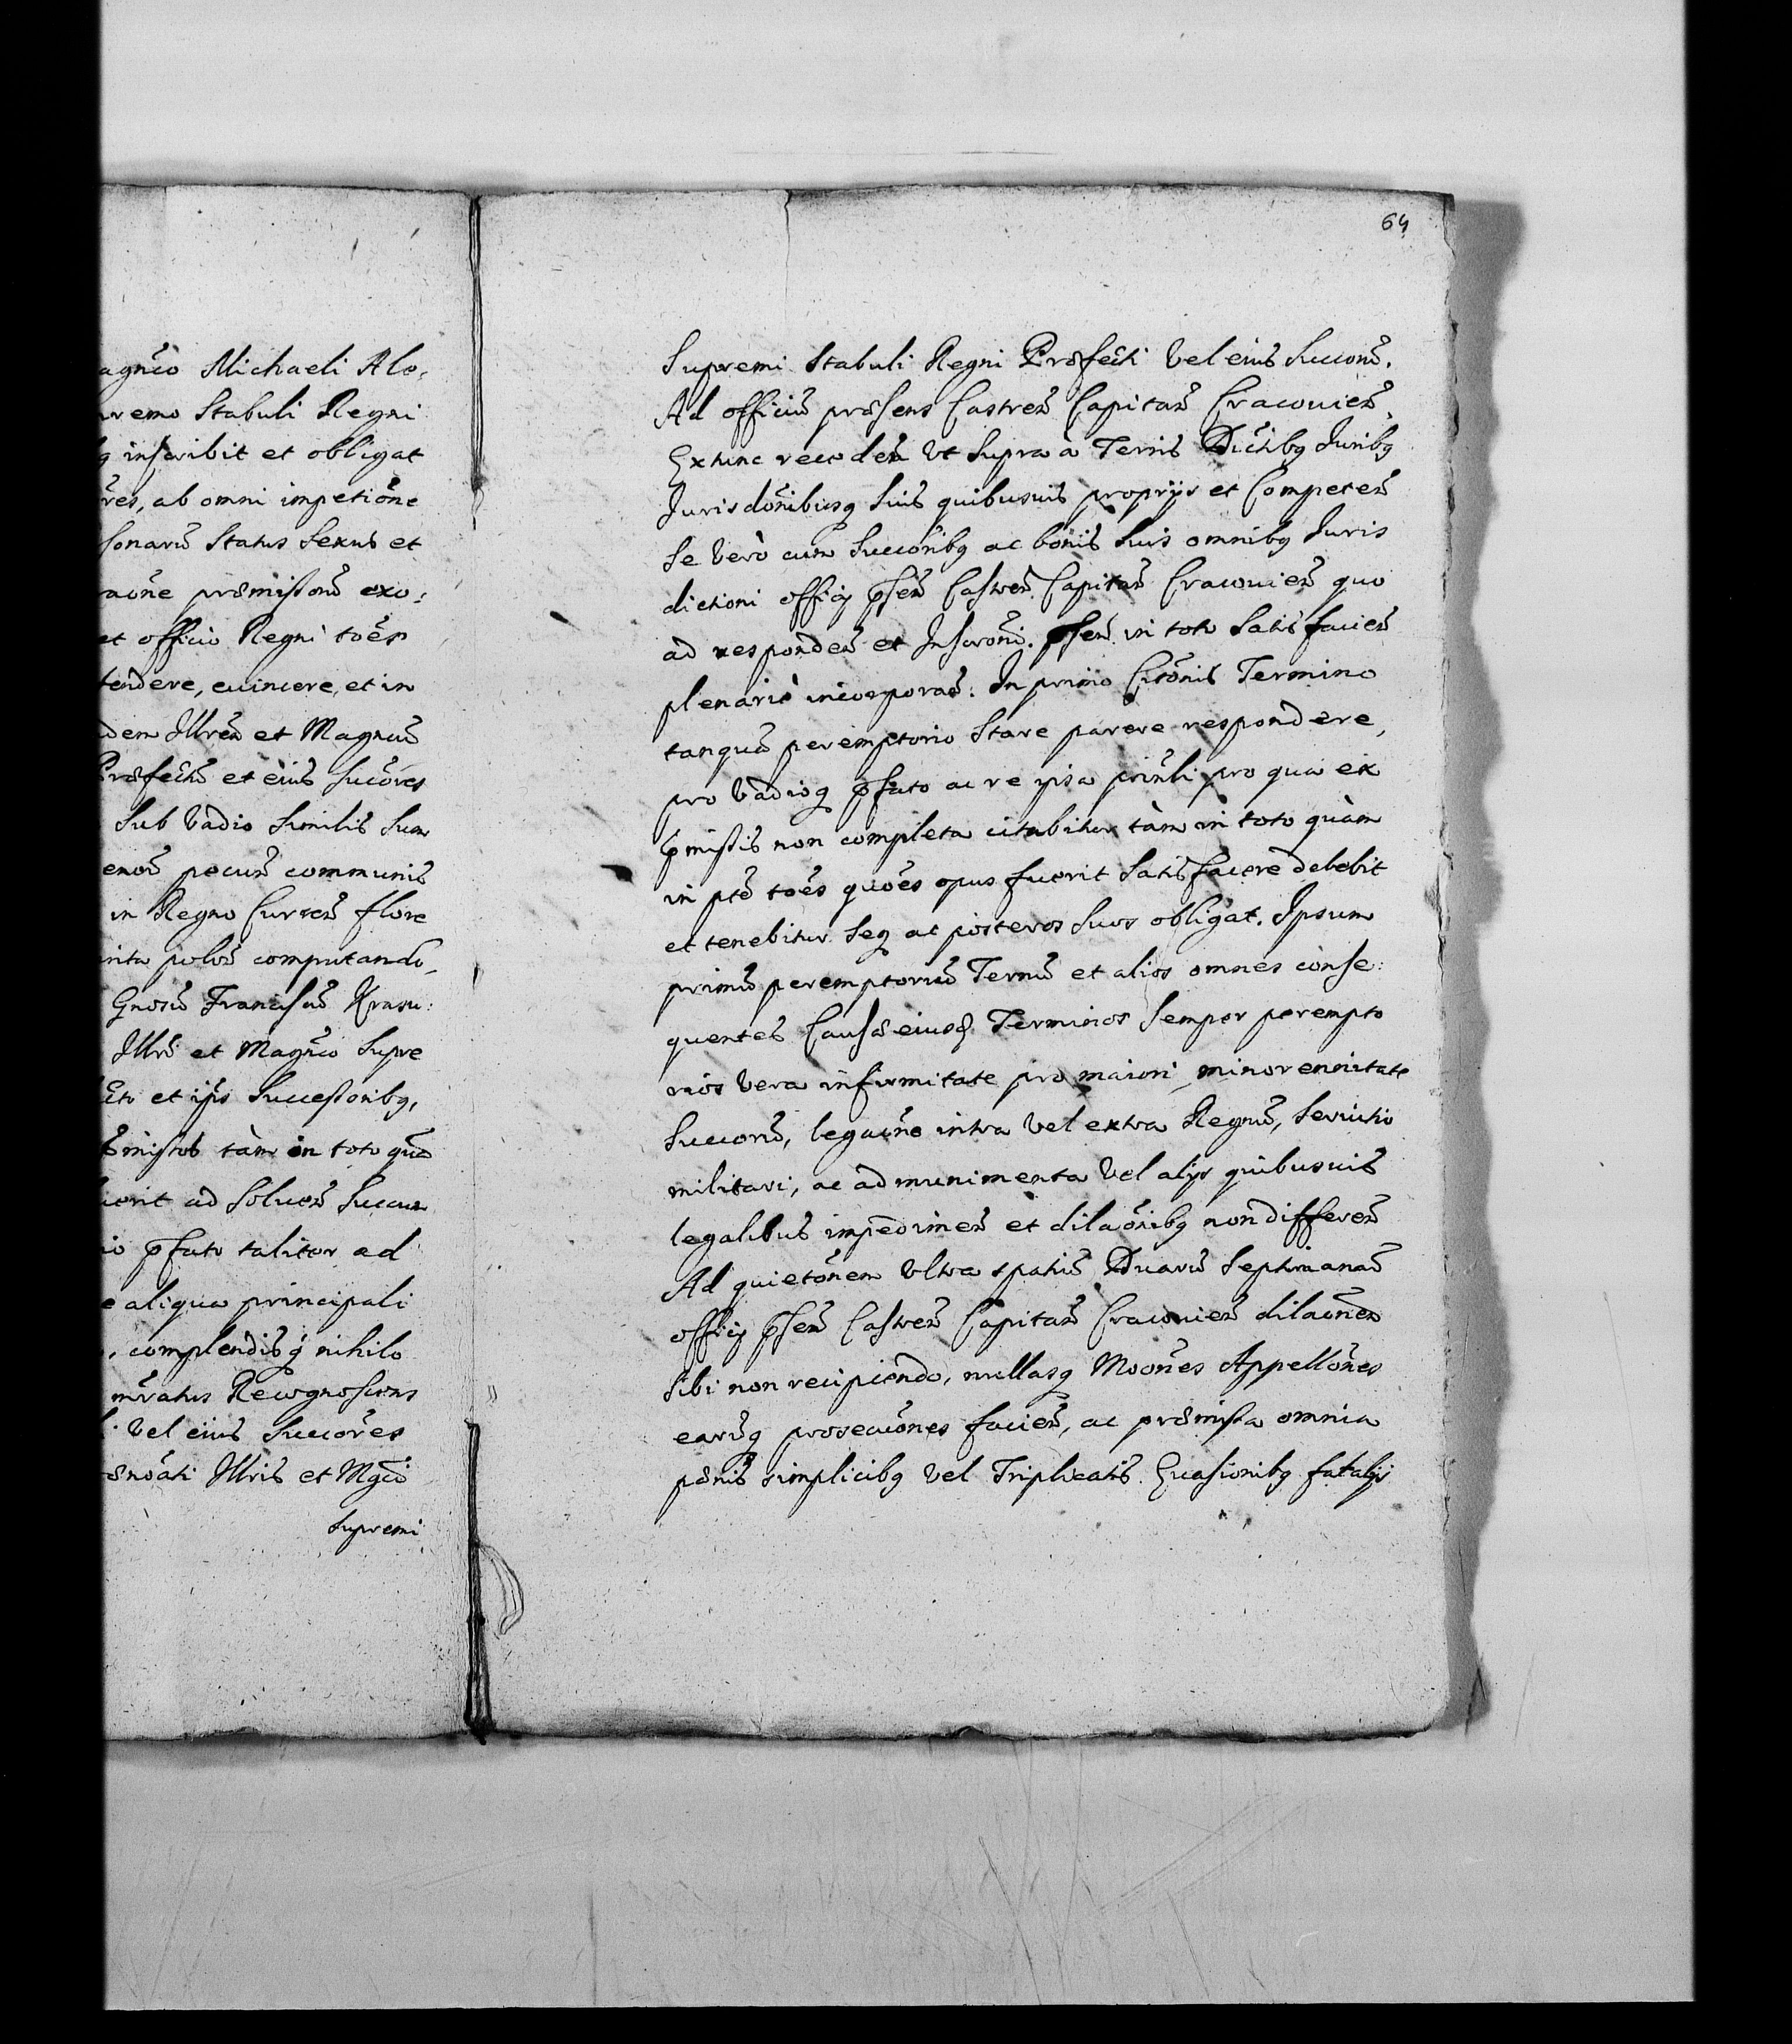 agñco Michaeli Alo:
premo Stabuli Regni
q inscribit et obligat
res, ab omni impetiõne
sonarũ Status Sexus et
aõne præmissorũ exo:
et officio Regni toẽs
tendere, euincere, et in
dem Illrẽm et Magncũ
Præfectũ et eius Succõres
Sub Vadio similis Sum
pecuñ communis
in Regno Curreñ flore
inta poloñ computando,
Gnosũ Franciscũ Krasu:
Illri et Magñco Supre
cto et ipsis Successoribq,
p̃missos tàm in toto quã
uerit ad Solueñ Succum
io p̃fato taliter ad
e aliqua principali
, complendis q̃ nihilo
Recognoscens
Vel eius Succõres
Illris et Mgci
Supremi
64
Supremi Stabuli Regni Præfecti Vel eius Succorũ.
Ad officiũ præsens Castreñ Capitañ Cracouieñ.
Extunc recedeñ Vt Supra à Terris Dictibq Juribq
Jurisdõnibusq suis quibusuis proprijs et Competeñ
Se Verò cum Succoribq ac bonis suis omnibq Juris
dictioni officij p̃señ Castreñ Capitañ Cracouieñ quo
ad respondeñ et Inscroni p̃señ in toto Satisfacieñ
plenariè incorporañ. In primo Citõnis Termino
tanquã peremptorio Stare parere respondere,
pro Vadioq p̃fato ac re ipsa prinli pro qua ex
p̃missis non completa citabitur tàm in toto quàm
in ptẽ toẽs quoẽs opus fuerit Satisfacere debebit
et tenebitur Seq ac posteros suos obligat. Ipsum
primũ peremptoriũ Termũ et alios omnes conse:
quentes Causæ eiusd Terminos Semper perempto
rios Vera infirmitate pro maiori minorennitate
Succorũ, legaõne intra Vel extra Regnũ, Seruitio
militari, ac ad munimenta Vel alijs quibusuis
legalibus impedimeñ et dilaõnibq non differeñ
Ad quietõnem Vltra spatiũ Duarũ Septimanaũ
officij p̃señ Castreñ Capitañ Cracouieñ dilaõnem
Sibi non recipiendo, nullasq Moõnes Appellõnes
earũq prosecuõnes facieñ, ac præmissa omnia
pænis simplicibq Vel Triplicatis. Euasionibq fatalijs